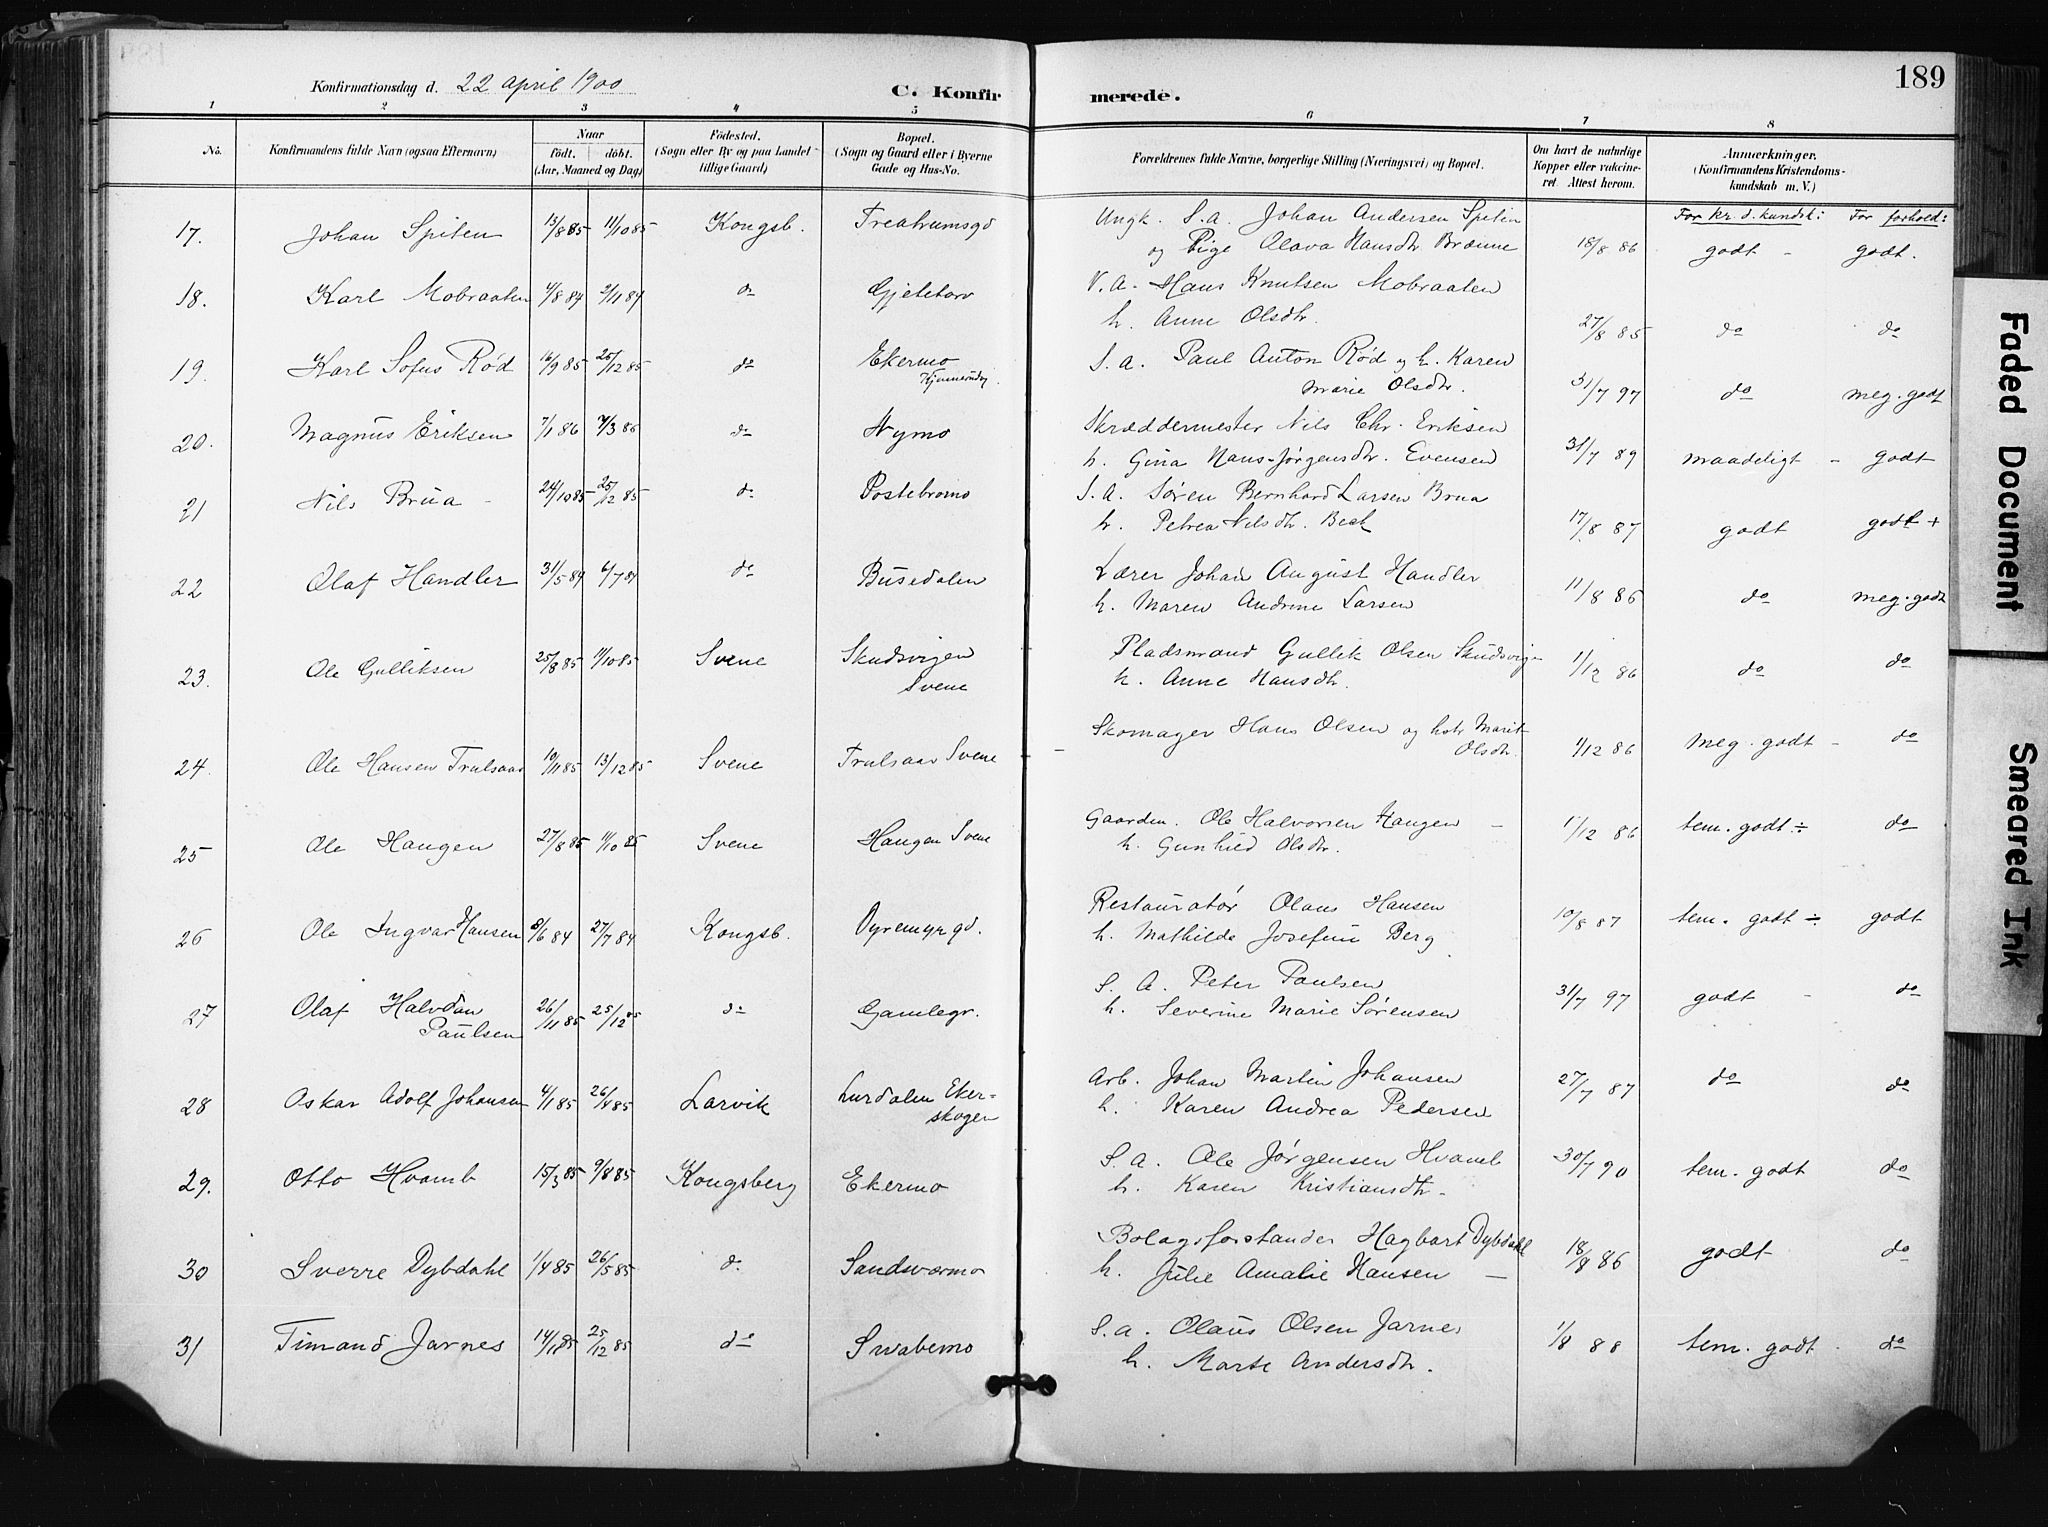 189
Konfirmationsdag d. 22 april 1900 C. Konfirmerede.
1 2 3 4 5 6 7 8
No. Konfirmandens fulde Navn (ogsaa Efternavn) Naar födt. döbt. (Aar, Maaned og Dag) Födested. (Sogn eller By og paa Landet tillige Gaard) Bopæl. (Sogn og Gaard eller i Byerne Gade og Hus-No. Forældrenes fulde Navne, borgerlige Stilling (Næringsvei) og Bopæl. Om havt de naturlige Kopper eller vakcineret Attest herom. Anmærkninger. (Konfirmandens Kristendomskundskab m. V.)
For kr. d. kundsk: For forhold:
17. Johan Spiten 13/8 85 11/10 85 Kongsb. Treatrumsgd Ungk. S.a. Johan Andersen Spiten
og Pige Olava Hansdtr Brænne 18/8 86 godt - godt.
18. Karl Mobraaten 4/8 84 2/11 84 do Gjeteberv V.A. Hans Knutsen Mobraaten
h. Anne Olsdtr. 27/8 85 do do
19. Karl Sofus Rød 16/9 85 25/12 85 do Ekermo S.a. Paul Anton Rød og h. Karen
Marie Olsdtr. 31/7 97 do meg. godt
20. Magnus Eriksen 7/1 86 7/3 86 do Nymo Skræddermester Nils Chr. Eriksen
h. Gina Hans-Jørgensdtr. Evensen 31/7 89 maadeligt - godt
21 Nils Brua - 24/10 85 25/12 85 do Postebromo S.A. Søren Bernhard Larsen Brua
h. Petrea Nilsdtr. Beck 17/8 87 godt godt +
22 Olaf Handler 31/5 84 6/7 84 do Busedalen Lærer Johan August Handler
h. Maren Andrine Larsen 11/8 86 do meg. godt
23. Ole Gulliksen 25/8 85 11/10 85 Svene Skudsvigen
Svene Pladsmand Gullik Olsen Skudsvigen
h. Anne Hansdtr. 1/12 86 do do
24. Ole Hansen Trulsaas 10/11 85 13/12 85 Svene Trulsaas Svene Skomager Hans Olsen og hstr Marit
Olsdtr. 1/12 86 Meg. godt - do
25 Ole Haugen 27/8 85 11/10 85 Svene Haugen Svene Gaardm. Ole Halvorsen Haugen -
h. Gunhild Olsdtr. 1/12 86 tem. godt ÷ do
26 Ole Ingvar Hansen 8/6 84 27/7 84 Kongsb. Dyremyrgd. Restauratør Olaus Hansen
h. Mathilde Josefine Berg 10/8 87 tem. godt ÷ godt
27 Olaf Halvdan
Paulsen 26/11 85 25/12 85 do Gamlegr. S.A. Peter Paulsen
h. Severine Marie Sørensen 31/7 97 godt - do
28 Oskar Adolf Johansen 4/1 85 26/4 85 Larvik Lurdalen Eker-
skogen Arb. Johan Martin Johansen
h. Karen Andrea Pedersen 27/7 87 do do
29. Otto Hvamb 15/3 85 9/8 85 Kongsberg Ekermo S.a. Ole Jørgensen Hvamb
h. Karen Kristiansdtr - 30/7 90 tem. godt do
30 Sverre Dybdahl 1/4 85 26/5 85 do Sandsværmo Bolagsforstander Hagbart Dybdahl
h. Julie Amalie Hansen - 18/8 86 godt do
31 Timand Jarnes 14/11 85 25/12 85 do Swabemo S.a. Olaus Olsen Jarnes
h. Marte Andersdtr. 1/8 88 tem. godt - do
Faded Document
Smeared Ink